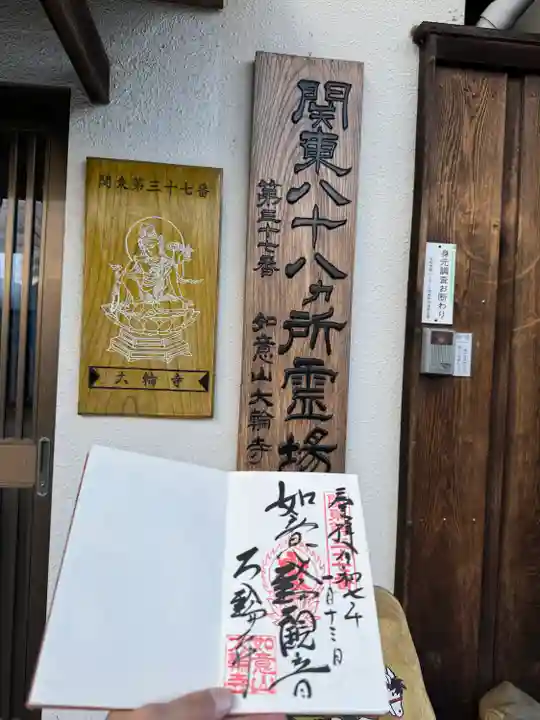 関東八十八ヵ所霊場
第三十七番
如意山大輪寺
関東第三十七番
大輪寺
身元調査お断わり
奉拝 令和七年
一月十三日
如意輪観音
大輪寺
如意山
大輪寺